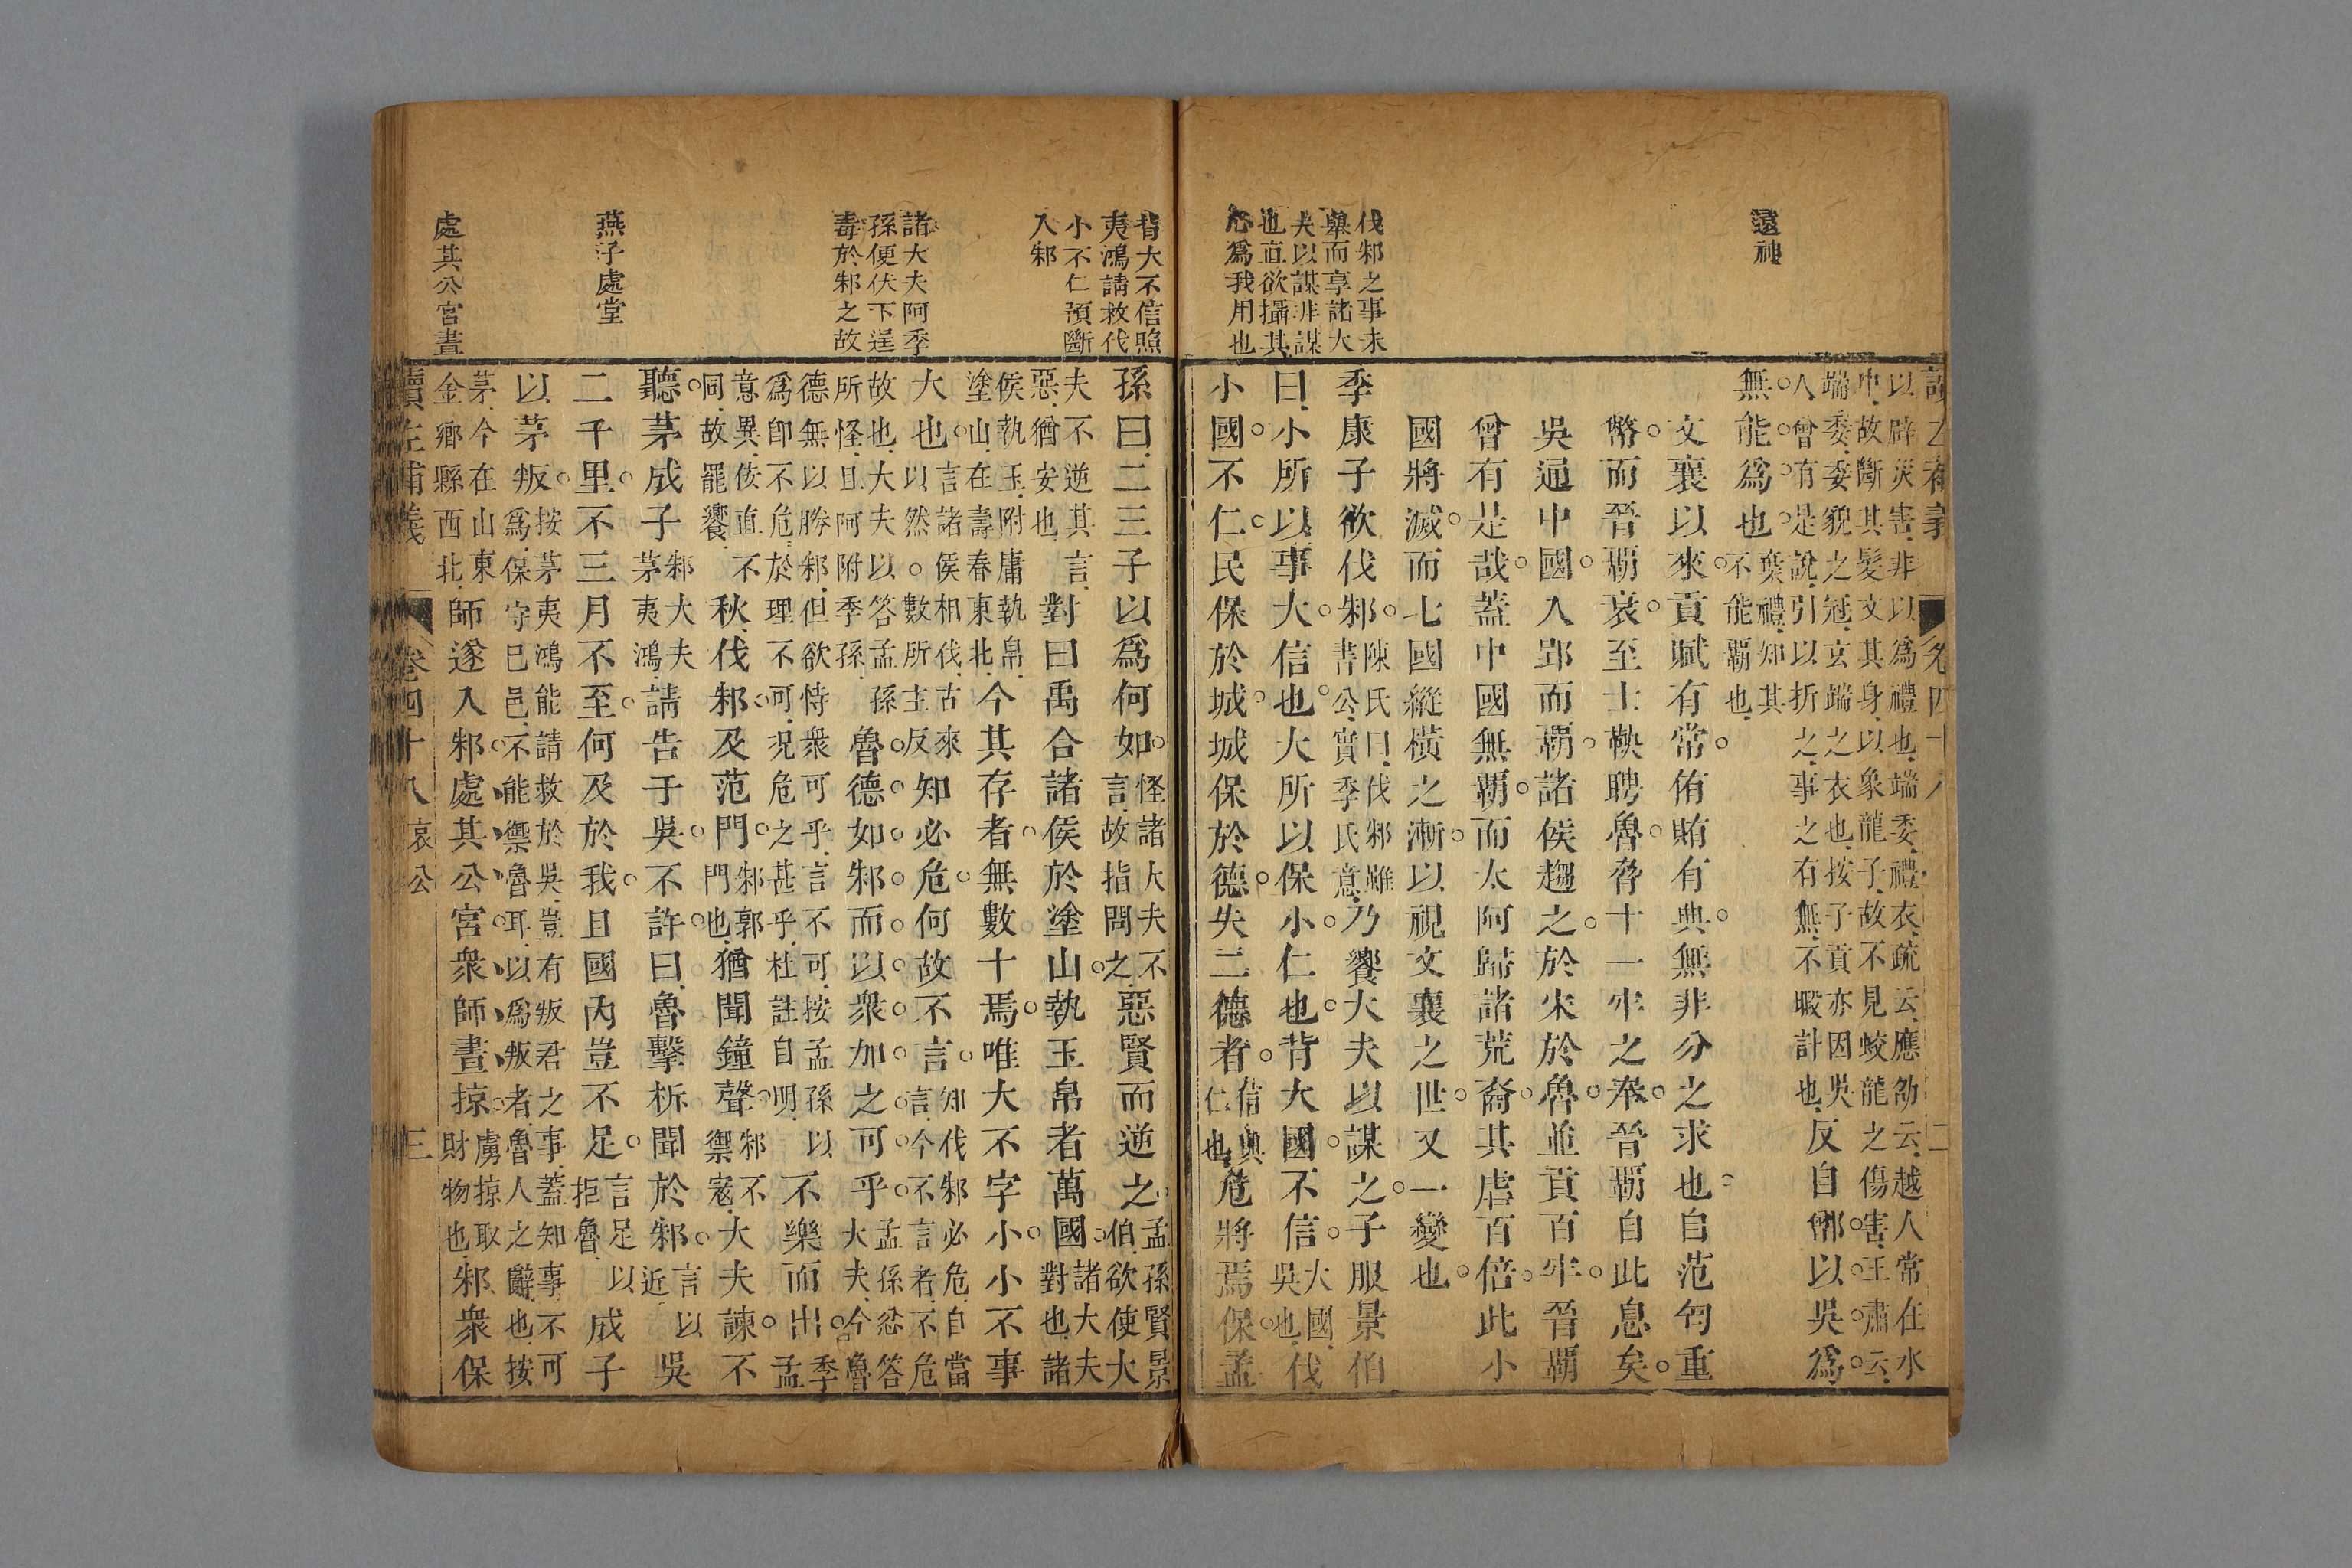 遠神
伐邾之事未
舉而享諸大
夫以謀非謀
也直欲攝其
心爲我用也
以辟災害非以爲禮也端委禮衣疏云應劭云越人常在水
中故斷其髮文其身以象龍子故不見蛟龍之傷害王肅云
端委委貌之冠玄端之衣也按子貢亦因吳
人曾有是說引以折之事之有無不暇計也
反自鄫以吳爲
無能爲也
棄禮知其
不能霸也
文襄以來貢賦有常侑賄有典無非分之求也自范匄重
幣而晉霸衰至士鞅聘魯脅十一牢之奉晉霸自此息矣
吳通中國入郢而霸諸侯趨之於宋於魯並貢百牢晉霸
曾有是哉蓋中國無霸而太阿歸諸荒裔其虐百倍此小
國將滅而七國縱橫之漸以視文襄之世又一變也
季康子欲伐邾
陳氏曰伐邾雖
書公實季氏意
乃饗大夫以謀之子服景伯
曰小所以事大信也大所以保小仁也背大國不信
大國
吳也
伐
小國不仁民保於城城保於德失二德者
信與
仁也
危將焉保孟
背大不信照
夷鴻請救伐
小不仁預斷
入邾
諸大夫阿季
孫便伏下逞
毒於邾之故
燕子處堂
處其公宮晝
孫曰二三子以爲何如
怪諸大夫不
言故指問之
惡賢而逆之
孟孫賢景
伯欲使大
夫不逆其言
惡猶安也
對曰禹合諸侯於塗山執玉帛者萬國
諸大夫
對也諸
侯執玉附庸執帛
塗山在壽春東北
今其存者無數十焉唯大不字小小不事
大也
言諸侯相伐古來
以然○數所主反
知必危何故不言
知伐邾必危自當
言今不言者不危
故也大夫以答孟孫
所怪且阿附季孫
魯德如邾而以衆加之可乎
孟孫忿答
大夫今魯
德無以勝邾但欲恃衆可乎言不可按孟孫以
爲卽不危於理不可況危之甚乎杜註自明
不樂而出
季
孟
意異佞直不
同故罷饗
秋伐邾及范門
邾郭
門也
猶聞鐘聲
邾不
禦寇
大夫諫不
聽茅成子
邾大夫
茅夷鴻
請告于吳不許曰魯擊柝聞於邾
言以
近
吳
二千里不三月不至何及於我且國內豈不足
言足以
拒魯
成子
以茅叛
按茅夷鴻能請救於吳豈有叛君之事蓋知事不可
爲保守已邑不能禦魯耳以爲叛者魯人之辭也按
茅今在山東
金鄉縣西北
師遂入邾處其公宮衆師晝掠
虜掠取
財物也
邾衆保
讀左補義 卷四十八 哀公 三